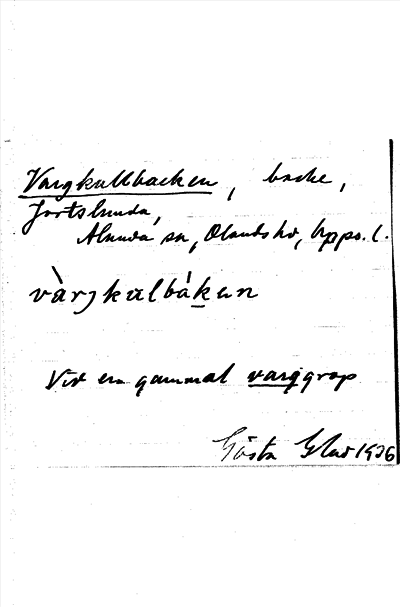 Vargkullbacken, backe,
Jortslunda,
Alunda sn, Olands hd, Upps. l.
vàrjkulbákun
Vid en gammal varggrop
Gösta Glad 1936